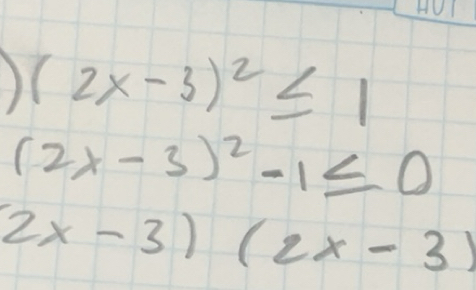 )(2x-3)² ≤ 1
(2x-3)²-1≤0
2x-3) (2x-3)